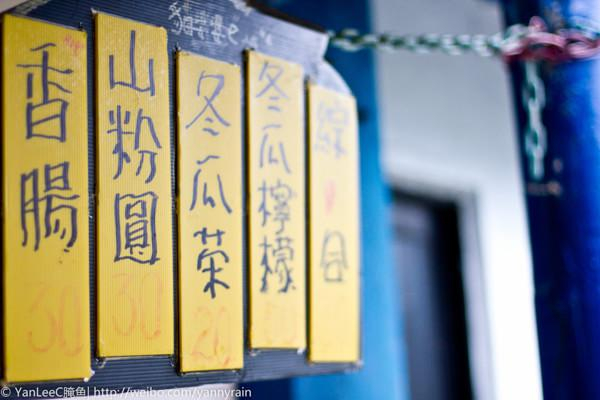 香腸
30
山粉圓
30
冬瓜茶
20
冬瓜檸檬
綜合
© YanLeeC腌鱼| http://weibo.com/yannyrain